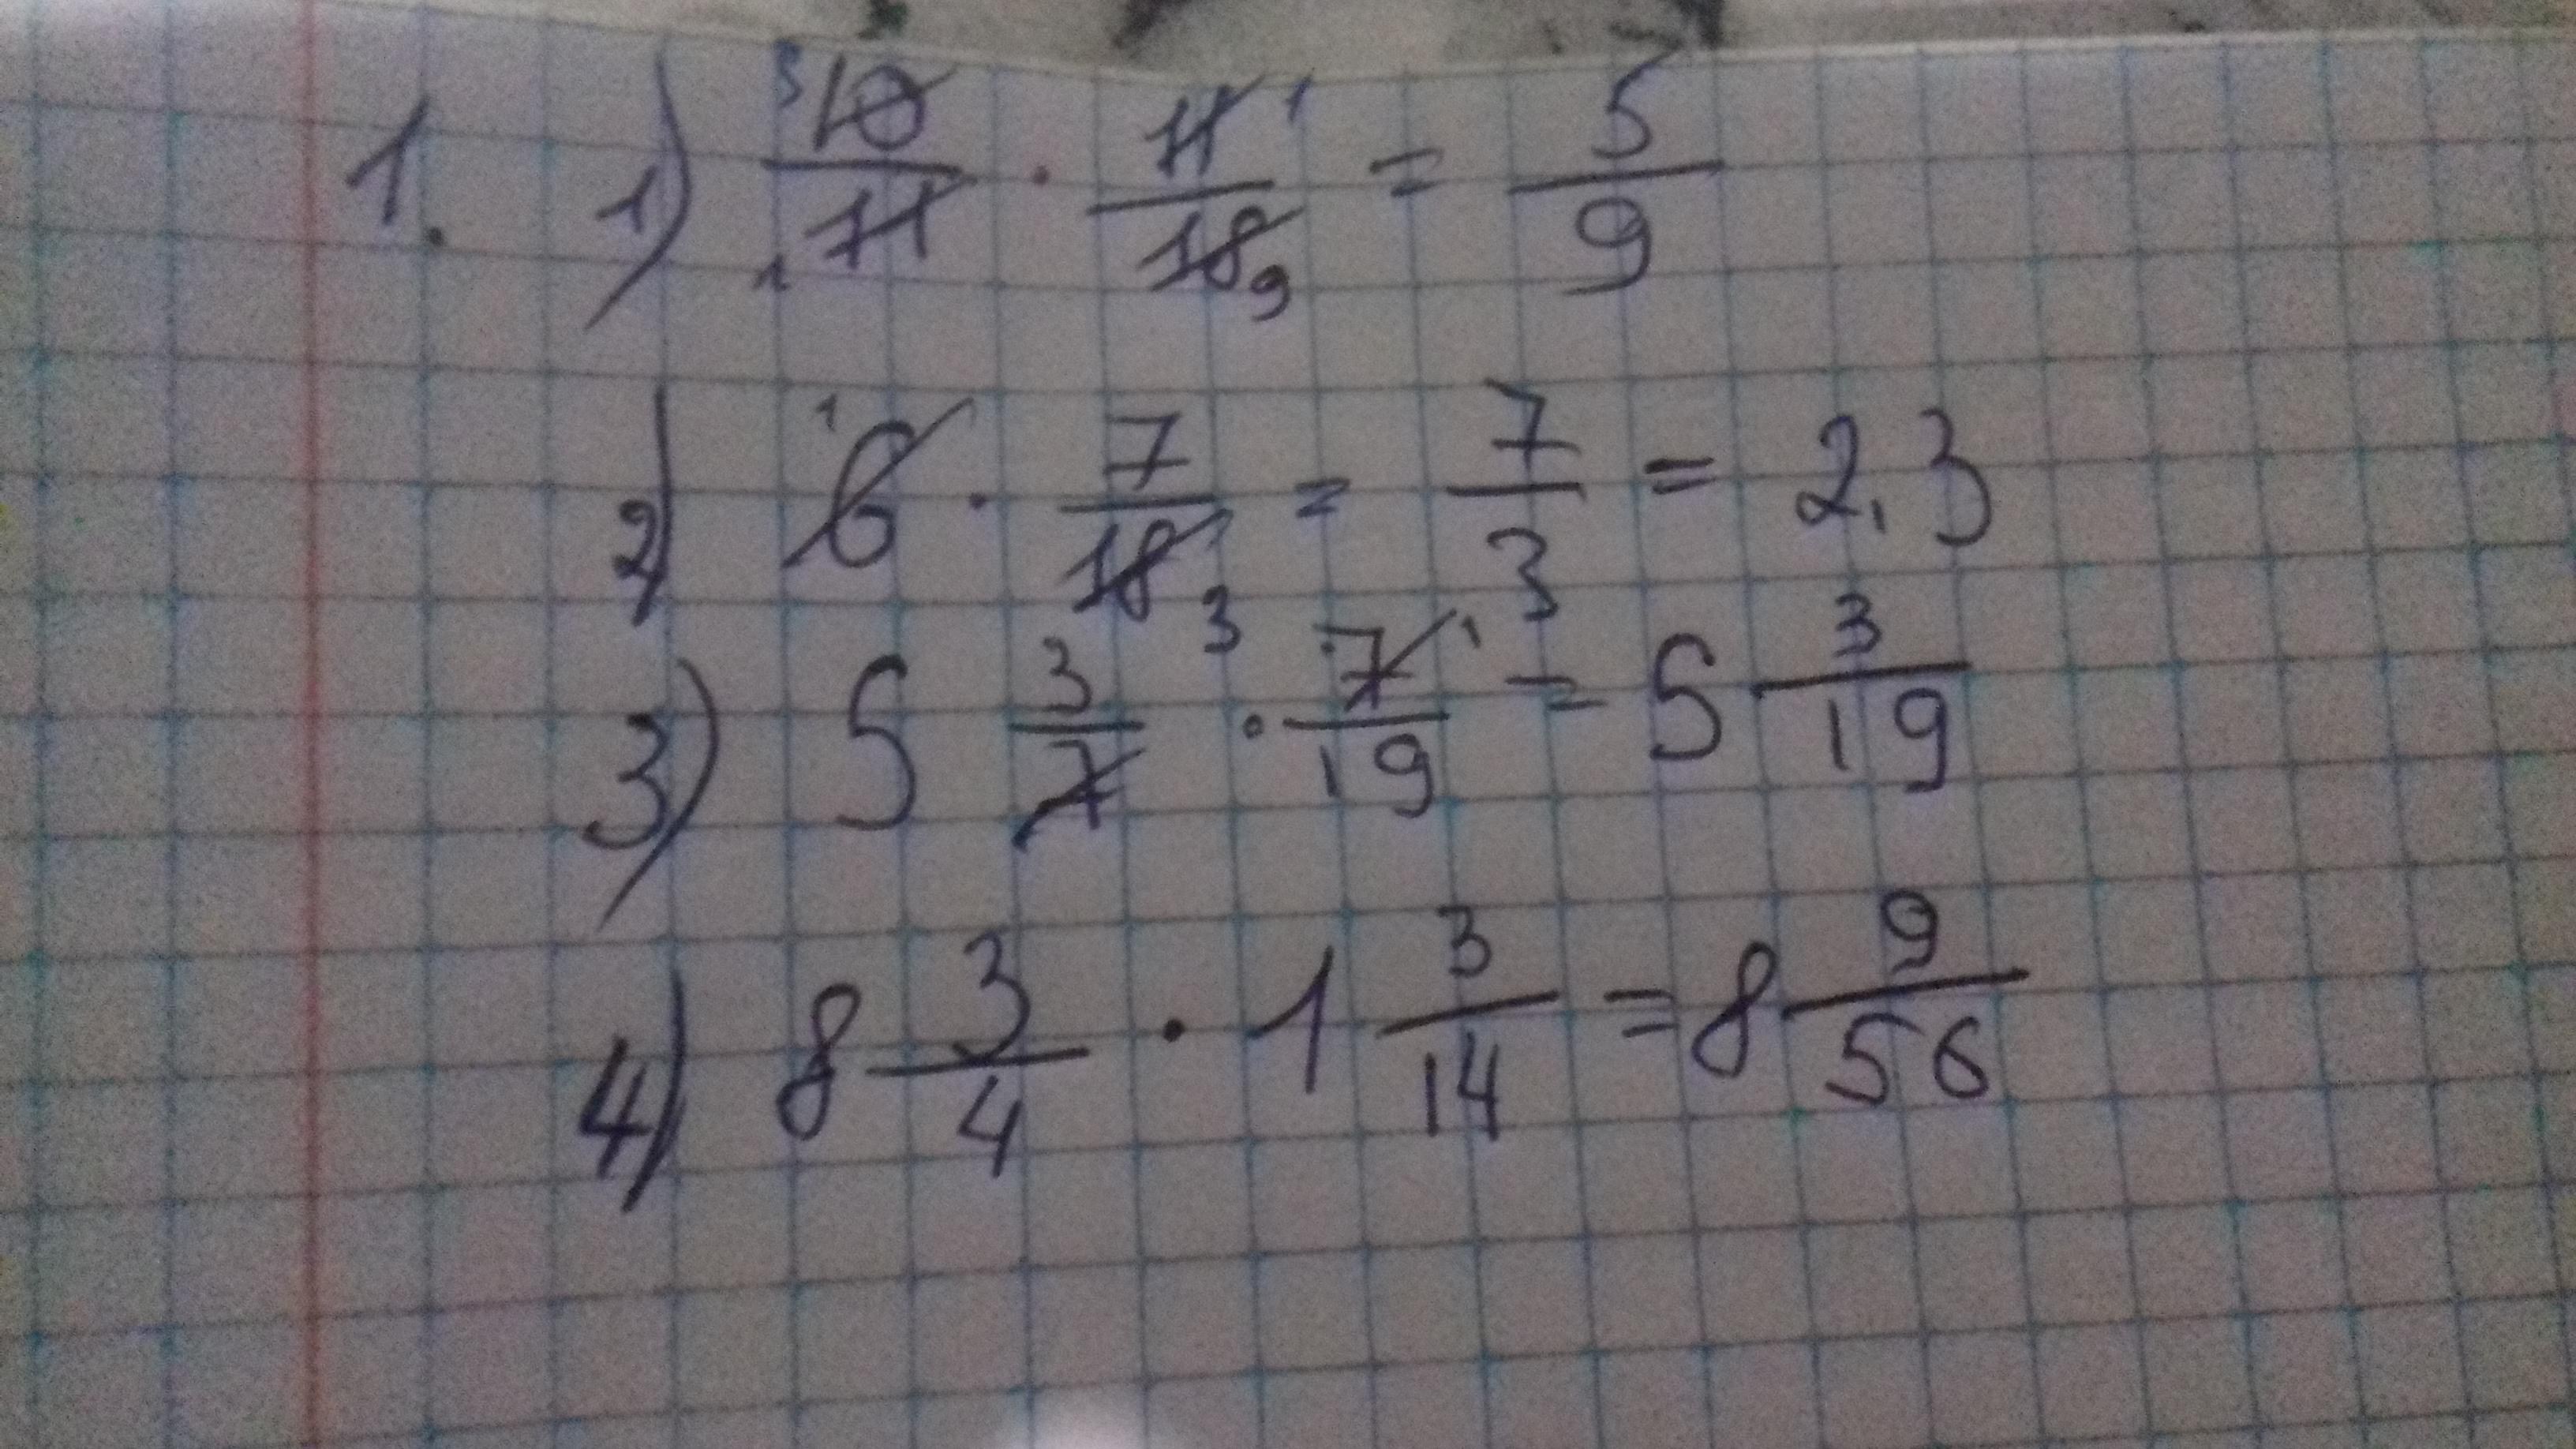 1. 1) 10/11 · 11/18 = 5/9
2) 6 · 7/18 = 7/3 = 2,3
3) 5 3/7 · 7/19 = 5 3/19
4) 8 3/4 · 1 3/14 = 8 9/56